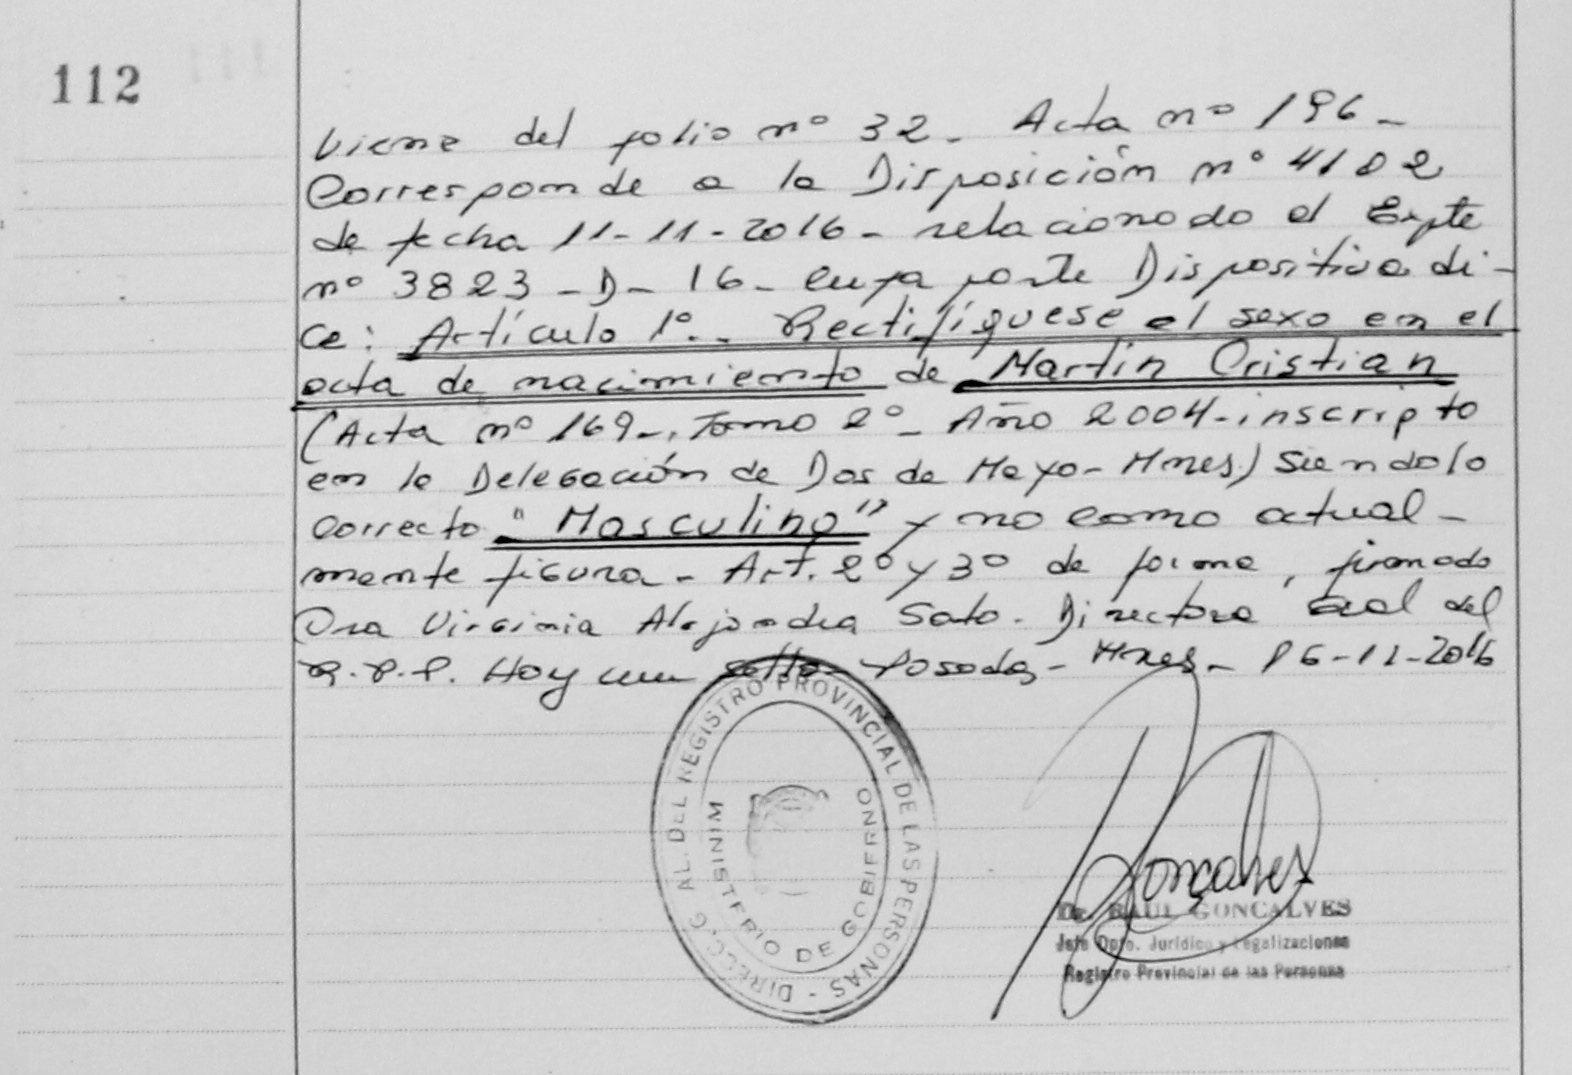 112
Viene del folio nº 32 - Acta nº 196 -
Corresponde a la Disposición nº 4182
de fecha 11-11-2016 - relacionado el Expte
nº 3823 - D - 16 - cuya parte Dispositiva di-
ce: Artículo 1º.- Rectifíquese el sexo en el
acta de nacimiento de Martin Cristian
(Acta nº 169-, Tomo 2º - Año 2004 - inscripto
en la Delegación de Dos de Mayo - Mnes) Siendo lo
correcto "Masculino" y no como actual-
mente figura - Art. 2º y 3º de forma, firmado
Dra Virginia Alejandra Sato. Directora Gral del
R.P.P. Hoy un sello Posadas - Mnes - 16-11-2016
DIRECC. G AL. DEL REGISTRO PROVINCIAL DE LAS PERSONAS -
MINISTERIO DE GOBIERNO
Gonçalves
Dr. RAUL GONCALVES
Jefe Dpto. Jurídico y Legalizaciones
Registro Provincial de las Personas